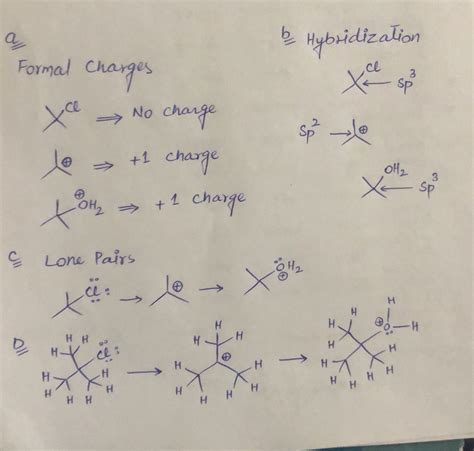 a
Formal Charges
Cl ⇒ No charge
⊕ ⇒ +1 charge
⊕
OH2 ⇒ +1 charge
b Hybridization
Cl
← Sp3
Sp2 → ⊕
OH2
← Sp3
c Lone Pairs
Cl: → ⊕ → OH2
⊕
D
H H Cl: H H H
H H H H ⊕ O—H
H H H → H ⊕ H → H H
H H H H H H H H
H H H H H H